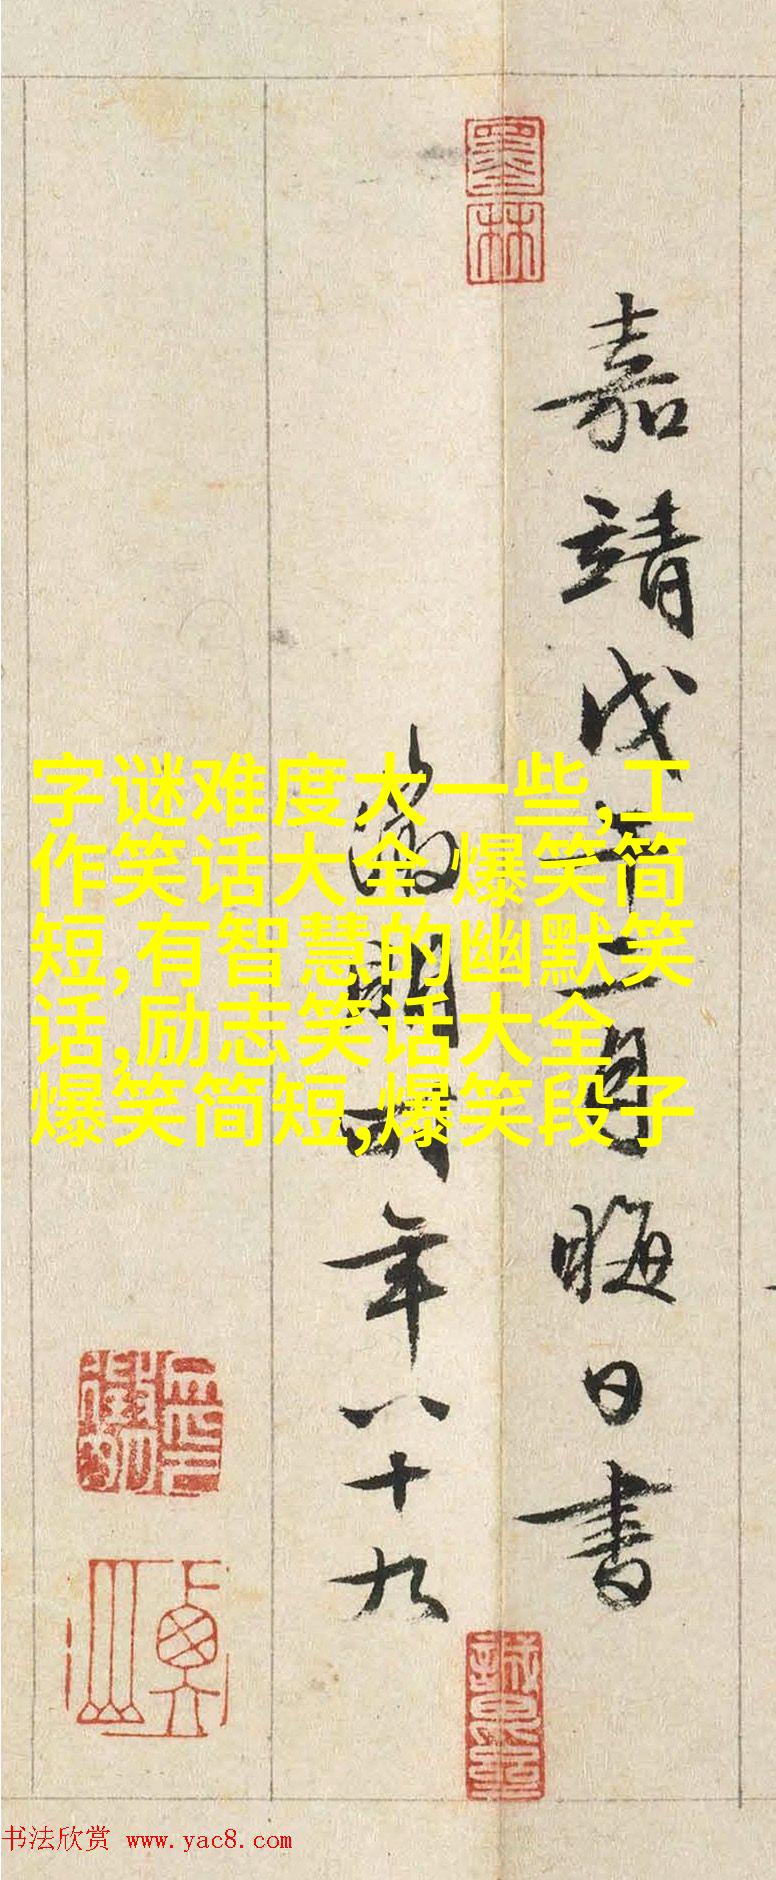 嘉靖戊午二月晦日書
徵明時年八十九
字谜难度大一些,工
作笑话大全 爆笑简
短,有智慧的幽默笑
话,励志笑话大全
爆笑简短,爆笑段子
墨林
书法欣赏 www.yac8.com